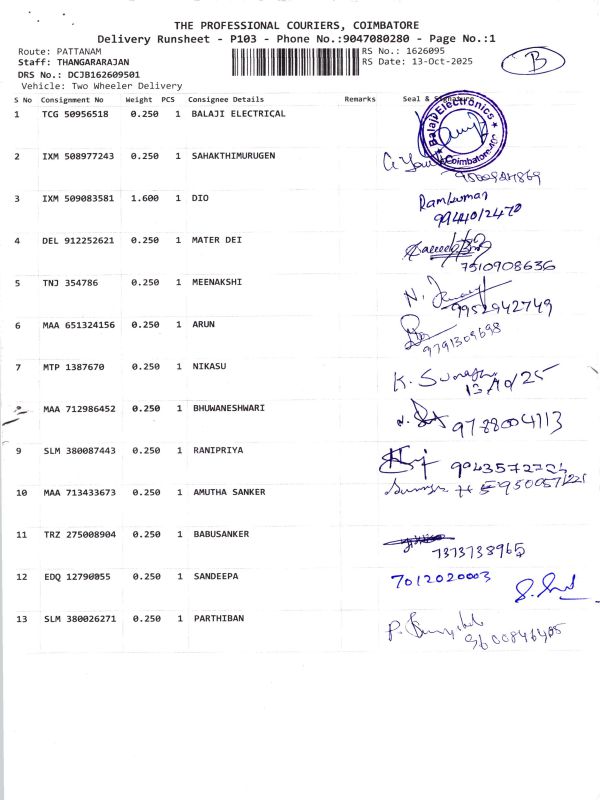 THE PROFESSIONAL COURIERS, COIMBATORE
Delivery Runsheet - P103 - Phone No.:9047080280 - Page No.:1
Route: PATTANAM
RS No.: 1626095
Staff: THANGARARAJAN
RS Date: 13-Oct-2025
B
DRS No.: DCJB162609501
Vehicle: Two Wheeler Delivery
S No Consignment No Weight PCS Consignee Details Remarks Seal & Signature
1 TCG 50956518 0.250 1 BALAJI ELECTRICAL
Balaji Electronics
Coimbatore
2 IXM 508977243 0.250 1 SAHAKTHIMURUGEN
3 IXM 509083581 1.600 1 DIO Ramkumar
9944012470
4 DEL 912252621 0.250 1 MATER DEI
7510908636
5 TNJ 354786 0.250 1 MEENAKSHI N.
9952942749
6 MAA 651324156 0.250 1 ARUN
9791309698
7 MTP 1387670 0.250 1 NIKASU K.
13/10/25
MAA 712986452 0.250 1 BHUWANESHWARI 9788004113
9 SLM 380087443 0.250 1 RANIPRIYA
10 MAA 713433673 0.250 1 AMUTHA SANKER
11 TRZ 275008904 0.250 1 BABUSANKER
7373738965
12 EDQ 12790055 0.250 1 SANDEEPA 7012020003
13 SLM 380026271 0.250 1 PARTHIBAN P.